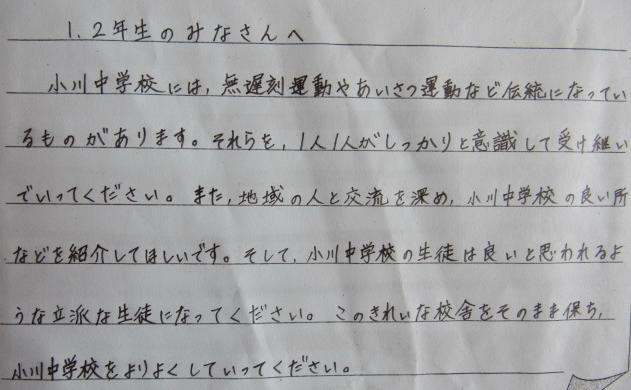 1.2年生のみなさんへ
小川中学校には,無遅刻運動やあいさつ運動など伝統になってい
るものがあります。それらを,1人1人がしっかりと意識して受け継い
でいってください。また,地域の人と交流を深め,小川中学校の良い所
などを紹介してほしいです。そして,小川中学校の生徒は良いと思われるよ
うな立派な生徒になってください。このきれいな校舎をそのまま保ち,
小川中学校をよりよくしていってください。